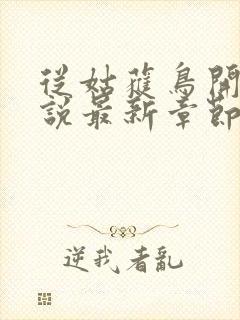 從姑蘿鳥開
說最新章節
逆我者亂